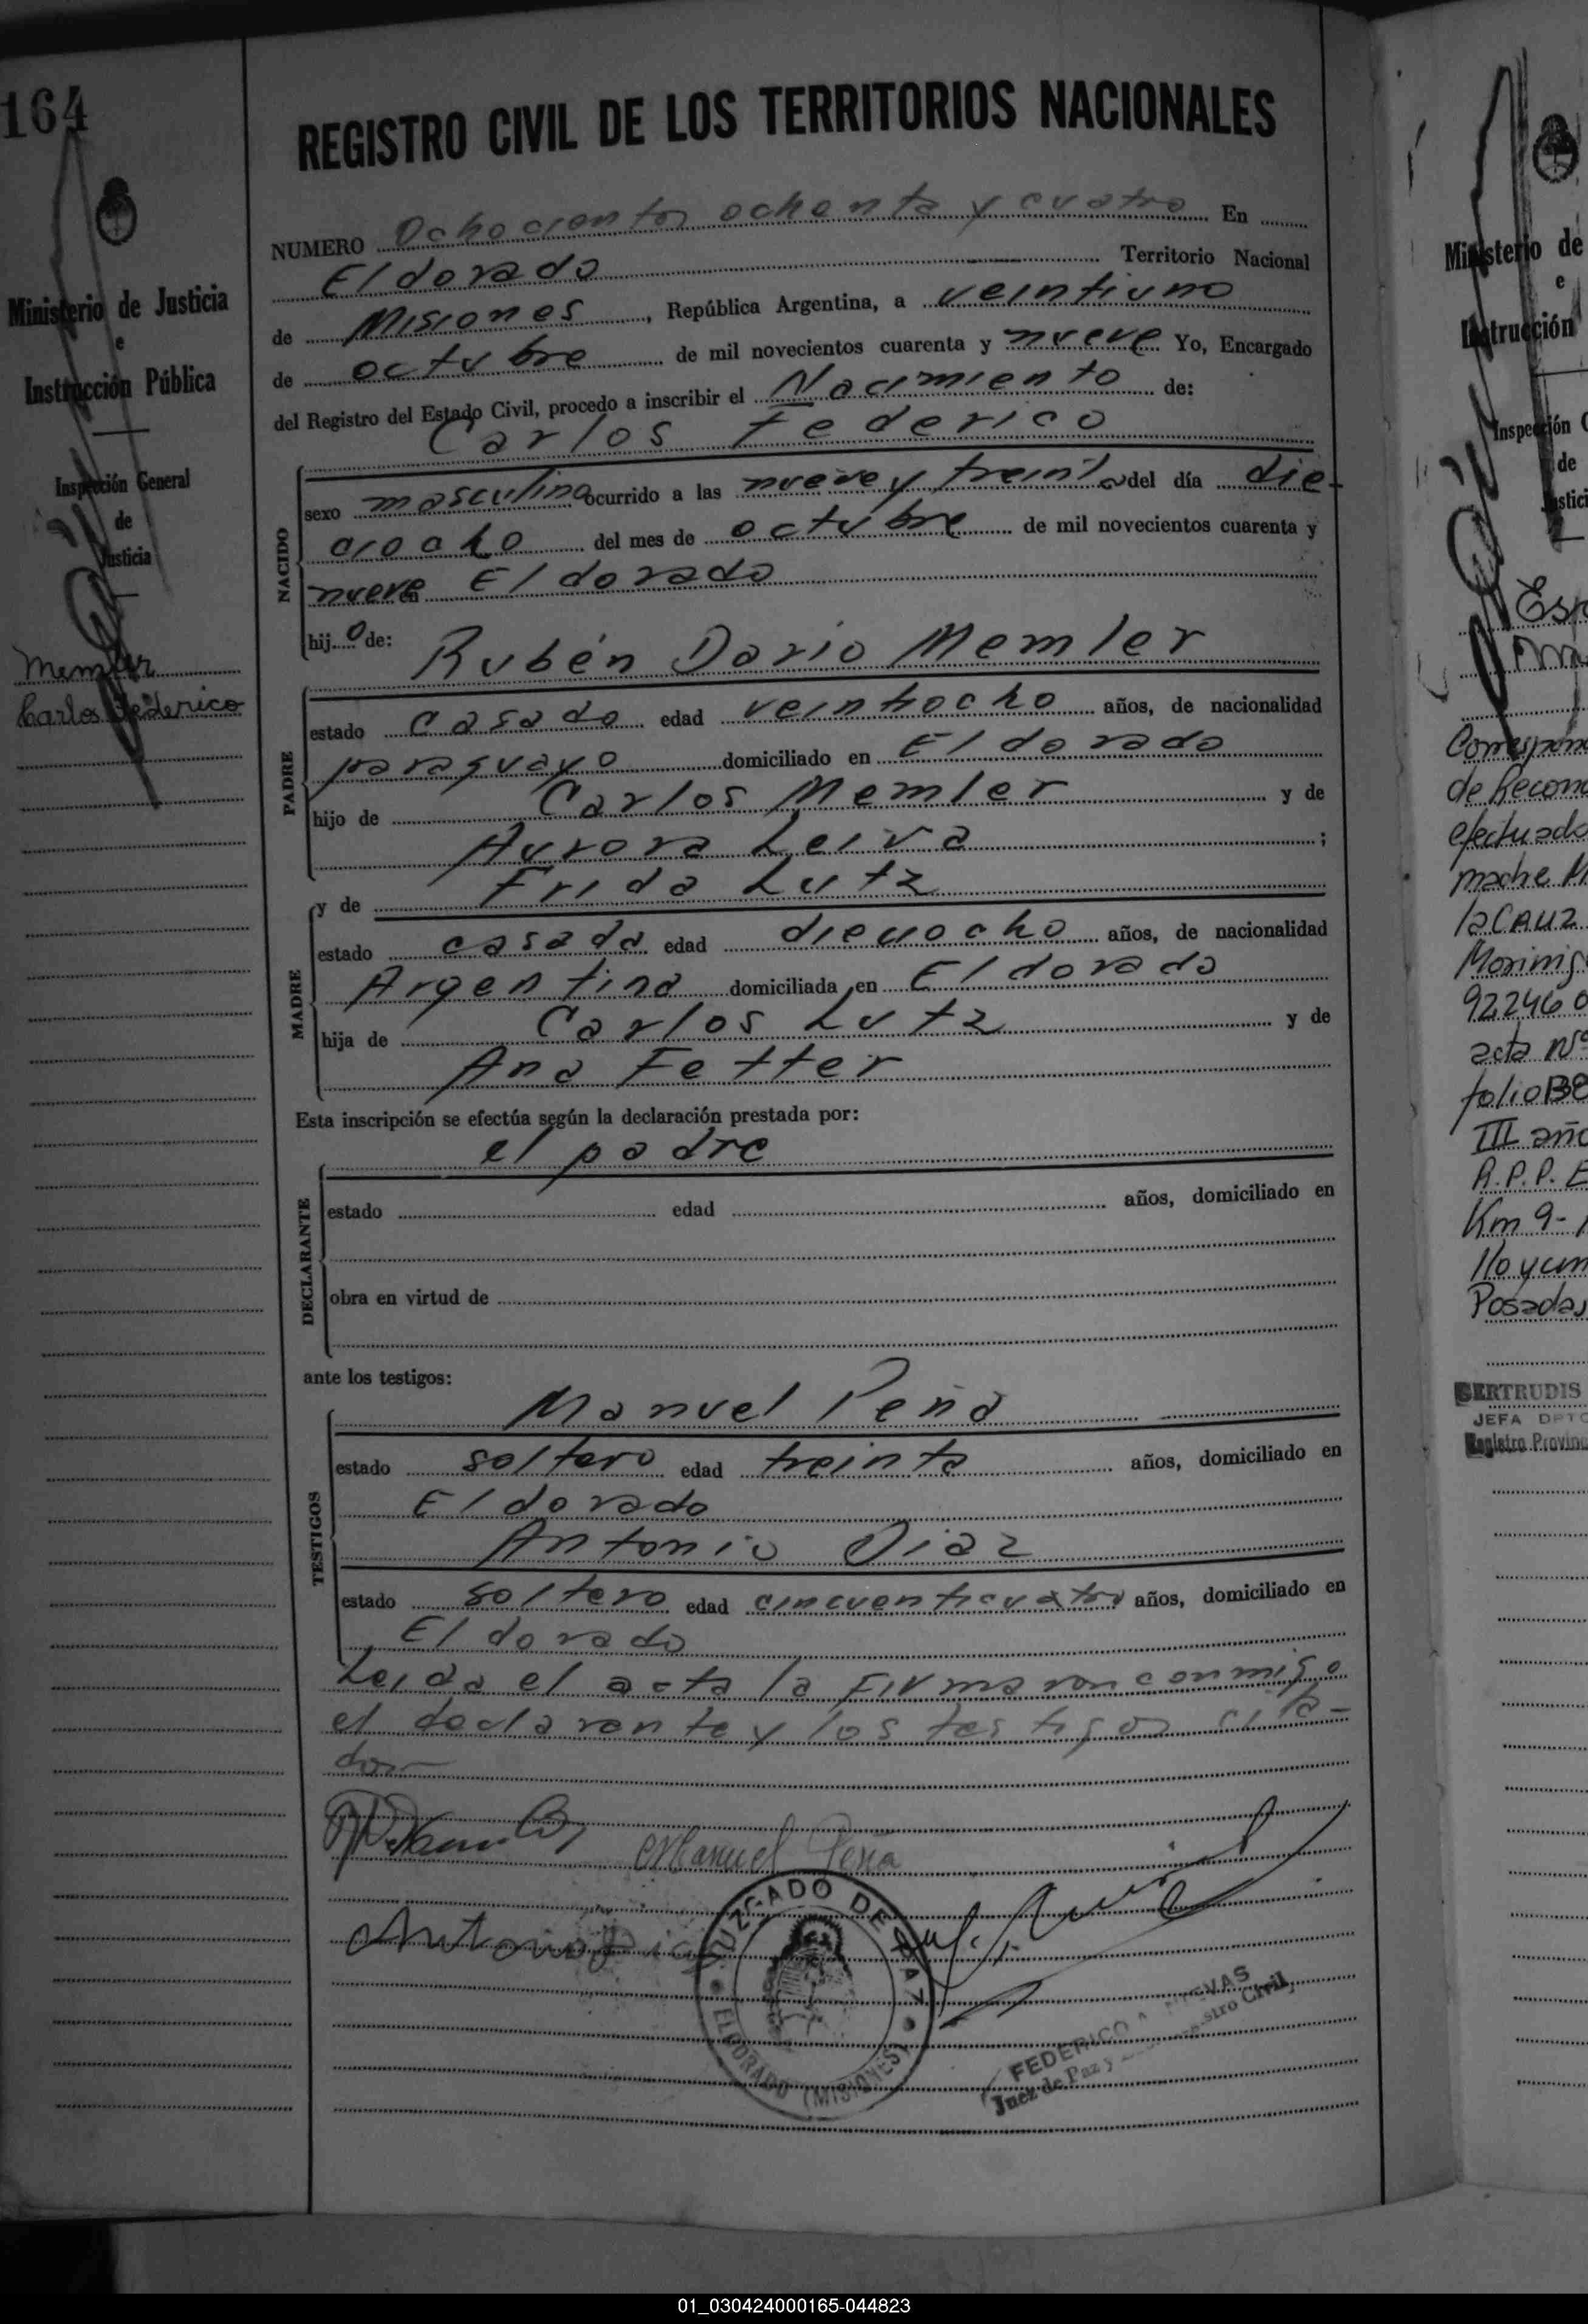 164
Ministerio de Justicia
e
Instrucción Pública
Inspección General
de
Justicia
Memler
Carlos Federico
REGISTRO CIVIL DE LOS TERRITORIOS NACIONALES
NUMERO Ochocientos ochenta y cuatro En
Eldorado Territorio Nacional
de Misiones, República Argentina, a veintiuno
de octubre de mil novecientos cuarenta y nueve Yo, Encargado
del Registro del Estado Civil, procedo a inscribir el Nacimiento de:
Carlos Federico
NACIDO
sexo masculino ocurrido a las nueve y treinta del día die-
cioaho del mes de octubre de mil novecientos cuarenta y
nueve en Eldorado
hijo de: Rubén Dario Memler
PADRE
estado casado edad veintiocho años, de nacionalidad
paraguayo domiciliado en Eldorado
hijo de Carlos Memler y de
Aurora Leiva ;
y de Frida Lutz
MADRE
estado casada edad dieciocho años, de nacionalidad
Argentina domiciliada en Eldorado
hija de Carlos Lutz y de
Ana Fetter
Esta inscripción se efectúa según la declaración prestada por:
el padre
DECLARANTE
estado edad años, domiciliado en
obra en virtud de
ante los testigos:
Manuel Peña
TESTIGOS
estado soltero edad treinta años, domiciliado en
Eldorado
Antonio Diaz
estado soltero edad cincuenticuatro años, domiciliado en
Eldorado
Leida el acta la firmaron conmigo
el declarante y los testigos cita-
dos
Manuel Peña
Antonio Diaz
JUZGADO DE PAZ
ELDORADO (MISIONES)
FEDERICO A.
Juez de Paz y Registro Civil
Ministerio de
e
Instrucción
Inspección G
de
Justici
Esp
Correspon
de Recono
efectuado
madre
la Cauz
Morinig
92246
acta Nº
folio
III año
R.P.P. E
Km 9-
110 y un
Posadas
GERTRUDIS
JEFA DPTO
Registro Provin
01_030424000165-044823